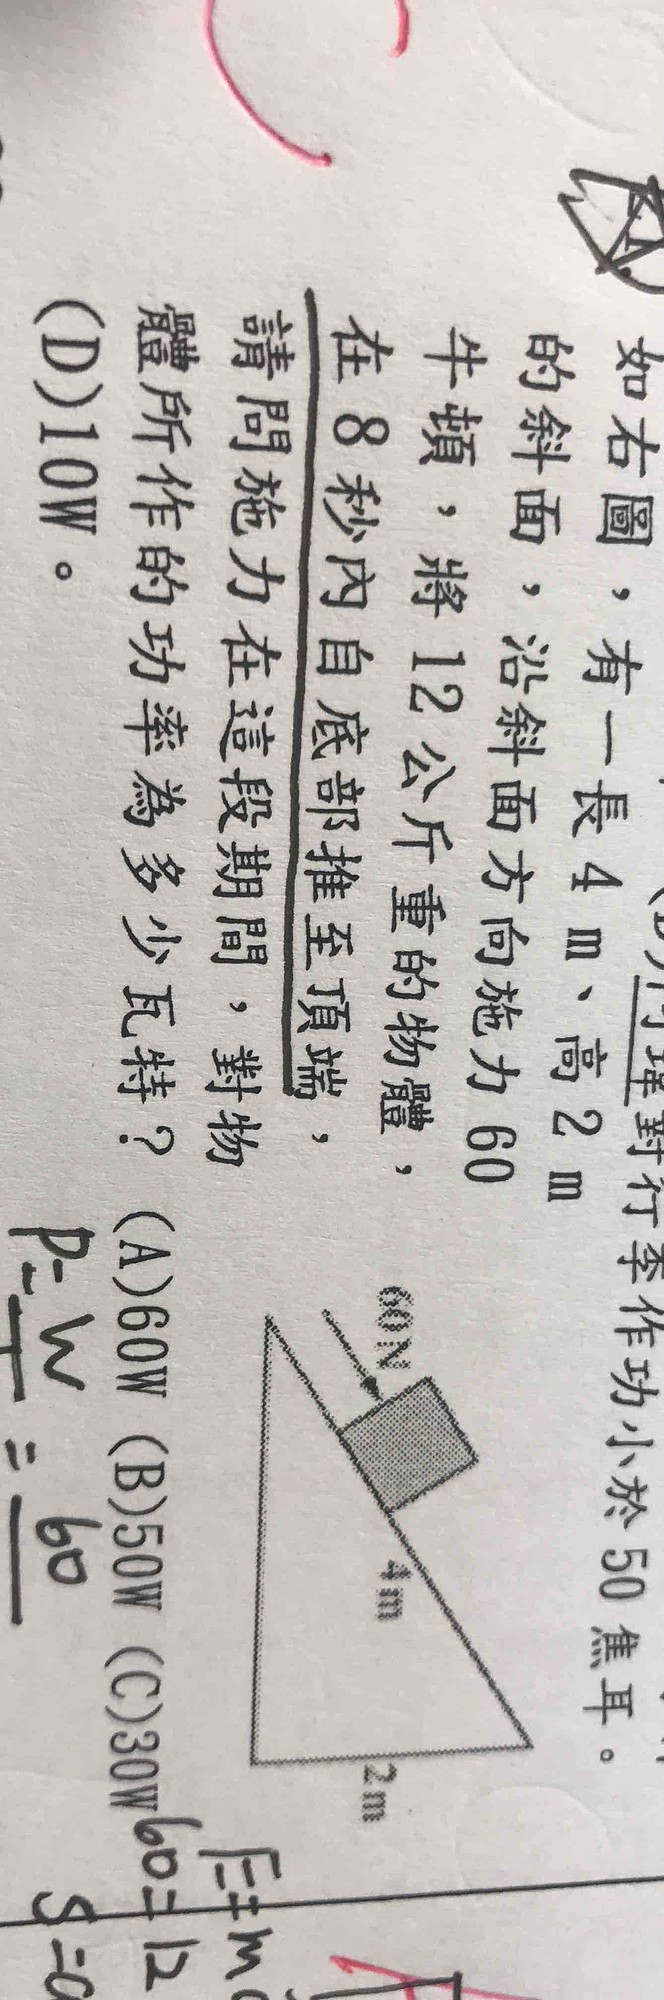 對行李作功小於 50 焦耳。
如右圖，有一長 4 m、高 2 m
的斜面，沿斜面方向施力 60
牛頓，將 12 公斤重的物體，
在 8 秒內自底部推至頂端，
請問施力在這段期間，對物
體所作的功率為多少瓦特？ (A)60W (B)50W (C)30W
(D)10W。
60N
4m
2m
P= W/T = 60
60=12